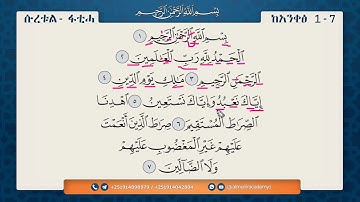 ሱረቱል- ፋቲሓ
بِسْمِ ٱللَّهِ ٱلرَّحْمَٰنِ ٱلرَّحِيمِ
ከአንቀፅ 1-7
بِسْمِ ٱللَّهِ ٱلرَّحْمَٰنِ ٱلرَّحِيمِ ١
ٱلْحَمْدُ لِلَّهِ رَبِّ ٱلْعَٰلَمِينَ ٢
ٱلرَّحْمَٰنِ ٱلرَّحِيمِ ٣ مَٰلِكِ يَوْمِ ٱلدِّينِ ٤
إِيَّاكَ نَعْبُدُ وَإِيَّاكَ نَسْتَعِينُ ٥ ٱهْدِنَا
ٱلصِّرَٰطَ ٱلْمُسْتَقِيمَ ٦ صِرَٰطَ ٱلَّذِينَ أَنْعَمْتَ
عَلَيْهِمْ غَيْرِ ٱلْمَغْضُوبِ عَلَيْهِمْ
وَلَا ٱلضَّآلِّينَ ٧